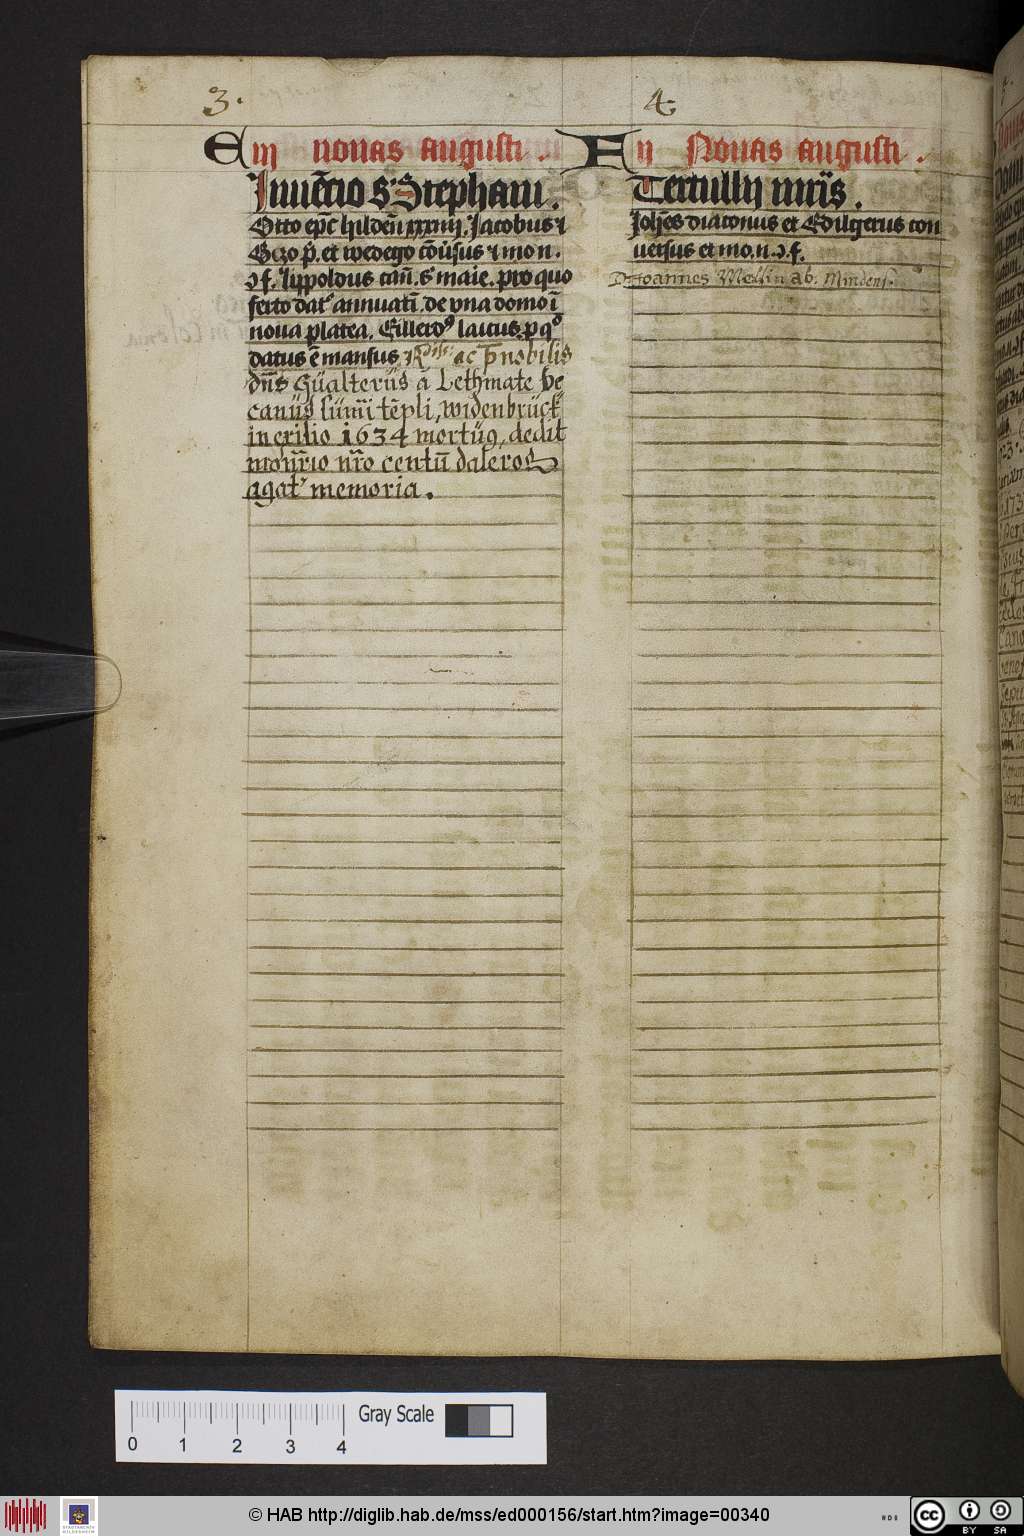 3.
E iij nonas augusti.
Inuēcio s. Stephani.
Otto ep̄c hildeñ xxxiiij. Jacobus ⁊
Gezo p̄. et wedego cōu͛sus ⁊ mo n.
ↄ f. lippoldus cañ. s. maie. pro quo
ferto dat᷑ annuati͞. de vna domo ī
noua platea. Eillerdꝰ laicus. p qͦ
datus ē mansus. ac p̄nobilis
dn̄s Gualterus á Lethmate De
canus sum̄i tēpli, widenbrück
in exilio 1634 mortuꝰ, dedit
mon͞rio nr̄o centū daleros
agat᷑ memoria.
4.
F ij Nonas augusti.
Tertullij mr̄is.
Joh̄es diaconus et Edilgerus con
uersus et mo. n. ↄ. f.
Joannes Mellin ab. Mindens.
0 1 2 3 4
Gray Scale
© HAB http://diglib.hab.de/mss/ed000156/start.htm?image=00340
STADTARCHIV
HILDESHEIM
cc BY SA